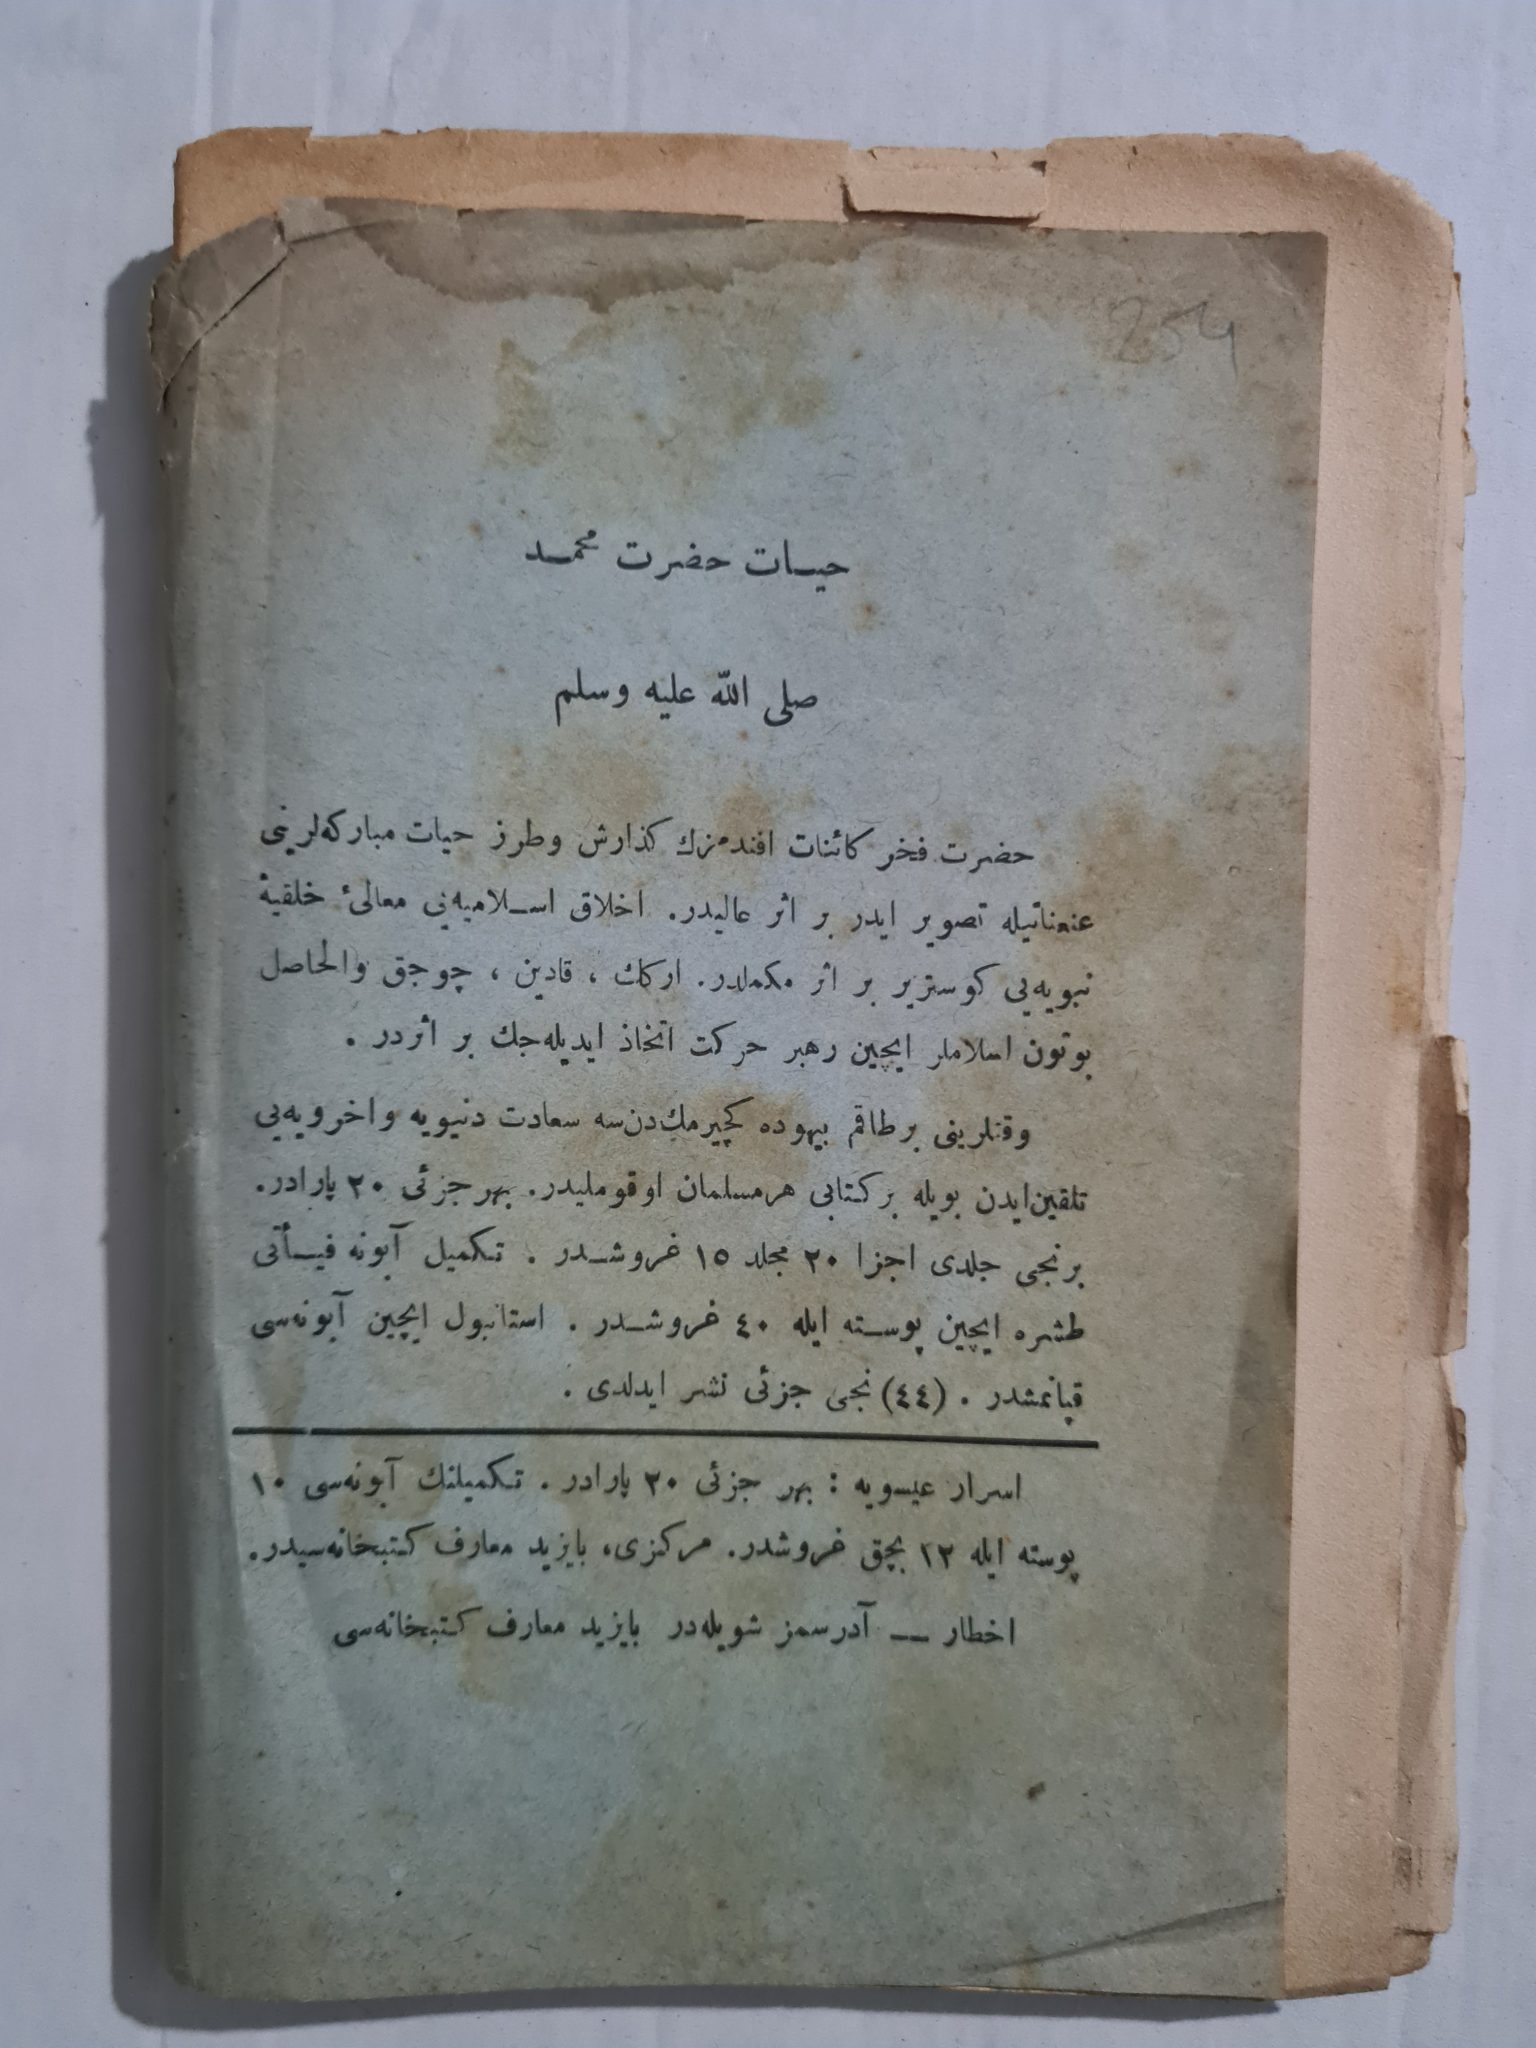 254
حیات حضرت محمد
صلی اللّٰه علیه وسلم
حضرت فخر کائنات افندمزك كذارش وطرز حیات مبارکه‌لرینی
عنعناتیله تصویر ایدر بر اثر عالیدر. اخلاق اسلامیه‌نی معالیٔ خلقیهٔ
نبویه‌یی کوستریر بر اثر مکملدر. ارکك ، قادین ، چوجق والحاصل
بوتون اسلاملر ایچین رهبر حرکت اتخاذ ایدیله‌جك بر اثردر .
وقتلرینی برطاقم بیهوده کچیرمك‌دن‌سه سعادت دنیویه واخرویه‌یی
تلقین‌ایدن بویله برکتابی هرمسلمان اوقوملیدر. بهر جزئی ٢٠ پارادر.
برنجی جلدی اجزا ٢٠ مجلد ١٥ غروشدر . تکمیل آبونه فیأتی
طشره ایچین پوسته ایله ٤٠ غروشدر . استانبول ایچین آبونه‌سی
قپانمشدر . (٤٤) نجی جزئی نشر ایدلدی .
اسرار عیسویه : بهر جزئی ٢٠ پارادر . تکمیلنك آبونه‌سی ١٠
پوسته ایله ١٢ بچق غروشدر. مرکزی، بایزید معارف کتبخانه‌سیدر.
اخطار — آدرسمز شویله‌در بایزید معارف کتبخانه‌سی